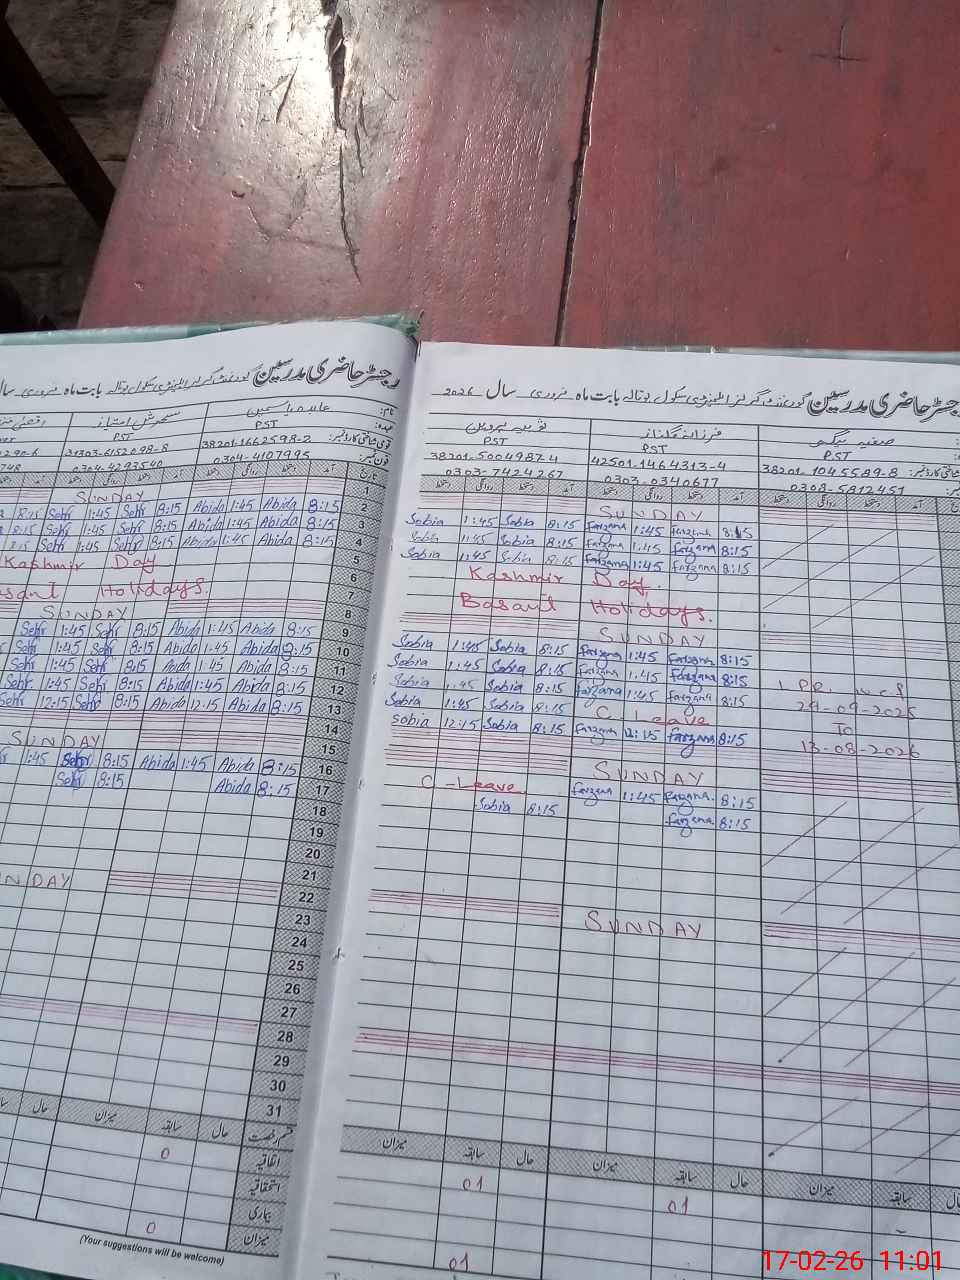 رجسٹر حاضری مدرسین گورنمنٹ گرلز ایلیمنٹری سکول بابت ماہ فروری سال
نام: عابدہ یاسمین سحرش امتیاز
عہدہ: PST PST
قومی شناختی کارڈ نمبر: 38201-1662598-2 31303-6152098-8
فون نمبر: 0304-4107995 0304-4293540
تاریخ آمد دستخط روانگی دستخط آمد دستخط روانگی دستخط
1 SUNDAY
2 8:15 Sehr 1:45 Sehr 8:15 Abida 1:45 Abida 8:15
3 8:15 Sehr 1:45 Sehr 8:15 Abida 1:45 Abida 8:15
4 8:15 Sehr 1:45 Sehr 8:15 Abida 1:45 Abida 8:15
5 Kashmir Day
6 Holidays.
7
8 SUNDAY
9 Sehr 1:45 Sehr 8:15 Abida 1:45 Abida 8:15
10 Sehr 1:45 Sehr 8:15 Abida 1:45 Abida 8:15
11 Sehr 1:45 Sehr 8:15 Abida 1:45 Abida 8:15
12 Sehr 1:45 Sehr 8:15 Abida 1:45 Abida 8:15
13 Sehr 12:15 Sehr 8:15 Abida 12:15 Abida 8:15
14
15 SUNDAY
16 1:45 Sehr 8:15 Abida 1:45 Abida 8:15
17 Sehr 8:15 Abida 8:15
18
19
20
21
22 SUNDAY
23
24
25
26
27
28
29
30
31
قسم رخصت حال سابقہ میزان حال
اتفاقیہ 0
استحقاقیہ
بیماری
میزان 0
(Your suggestions will be welcome)
رجسٹر حاضری مدرسین گورنمنٹ گرلز ایلیمنٹری سکول بابت ماہ فروری سال 2026
صفیہ بیگم فرزانہ گلناز ثوبیہ پروین
PST PST PST
شناختی کارڈ نمبر: 38201-1045589-8 42501-1464313-4 38201-5004987-4
0308-5812451 0303-0340677 0303-7424267
آمد دستخط روانگی دستخط آمد دستخط روانگی دستخط آمد دستخط روانگی دستخط
SUNDAY
Sobia 1:45 Sobia 8:15 Farzana 1:45 Farzana 8:15
Sobia 1:45 Sobia 8:15 Farzana 1:45 Farzana 8:15
Sobia 1:45 Sobia 8:15 Farzana 1:45 Farzana 8:15
Kashmir Day.
Basant Holidays.
SUNDAY
Sobia 1:45 Sobia 8:15 Farzana 1:45 Farzana 8:15
Sobia 1:45 Sobia 8:15 Farzana 1:45 Farzana 8:15
Sobia 1:45 Sobia 8:15 Farzana 1:45 Farzana 8:15
Sobia 1:45 Sobia 8:15 C-Leave 29-09-2025
Sobia 12:15 Sobia 8:15 Farzana 12:15 Farzana 8:15 To
13-08-2026
SUNDAY
C-Leave Farzana 1:45 Farzana 8:15
Sobia 8:15 Farzana 8:15
SUNDAY
میزان سابقہ حال میزان سابقہ حال میزان سابقہ حال
01 01
01
17-02-26 11:01